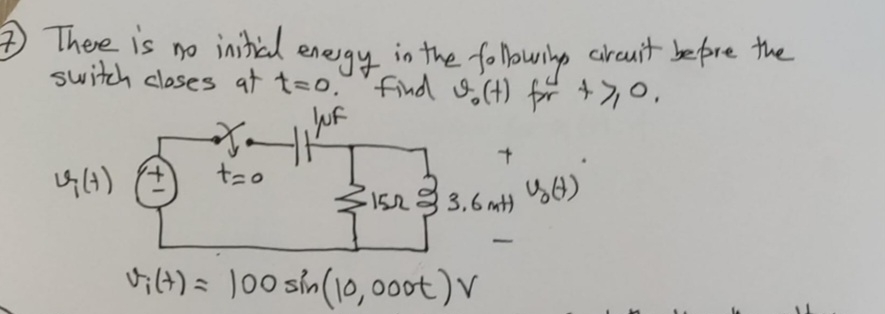 7) There is no initial energy in the following circuit before the
switch closes at t=0. find v₀(t) for t ≥ 0.
1μF
t=0
vᵢ(t)
+
-
15Ω
3.6 mH
+
v₀(t)
-
vᵢ(t) = 100 sin(10,000t) V